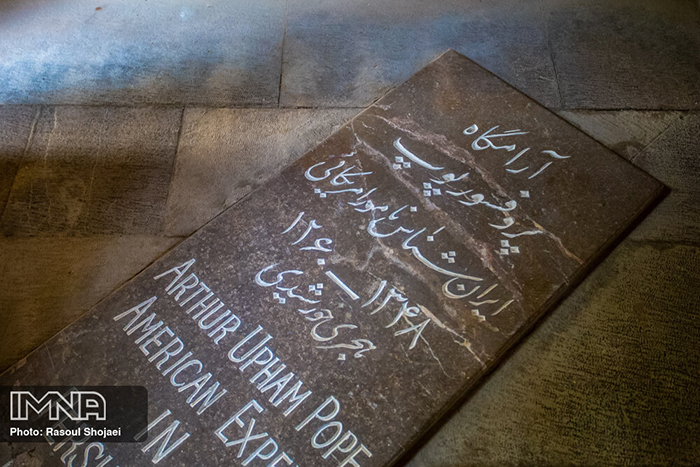 آرامگاه
پروفسور پوپ
ایران شناس نامور امریکائی
۱۲۶۰ — ۱۳۴۸
هجری خورشیدی
ARTHUR UPHAM POPE
AMERICAN EXPE
IN
ERSI
IMNA
Photo: Rasoul Shojaei